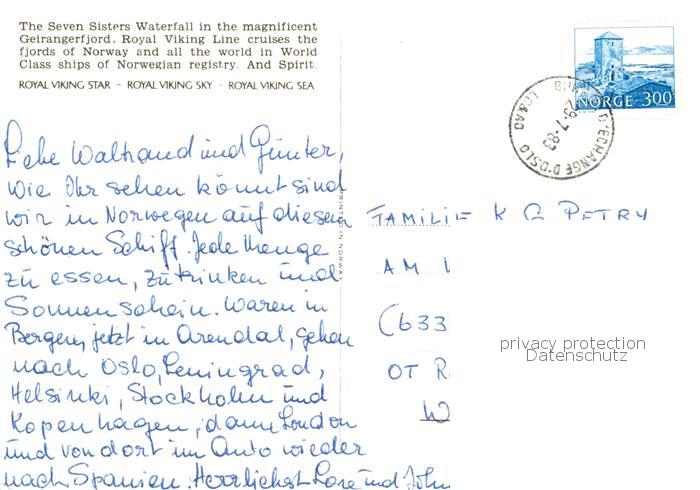 The Seven Sisters Waterfall in the magnificent
Geirangerfjord. Royal Viking Line cruises the
fjords of Norway and all the world in World
Class ships of Norwegian registry. And Spirit.
ROYAL VIKING STAR - ROYAL VIKING SKY - ROYAL VIKING SEA
Liebe Waltraud und Günter,
wie Ihr sehen könnt sind
wir in Norwegen auf diesem
schönen Schiff. Jede Menge
zu essen, zu trinken und
Sonnenschein. Waren in
Bergen, jetzt in Arendal, gehen
nach Oslo, Leningrad,
Helsinki, Stockholm und
Kopenhagen, dann London
und von dort im Auto wieder
nach Spanien. Herrlichst Lore und John
PRINTED IN NORWAY
NORGE 300
D'ECHANGE D'OSLO
FAMILIE K G PETRY
AM
(633
OT R
W
privacy protection
Datenschutz